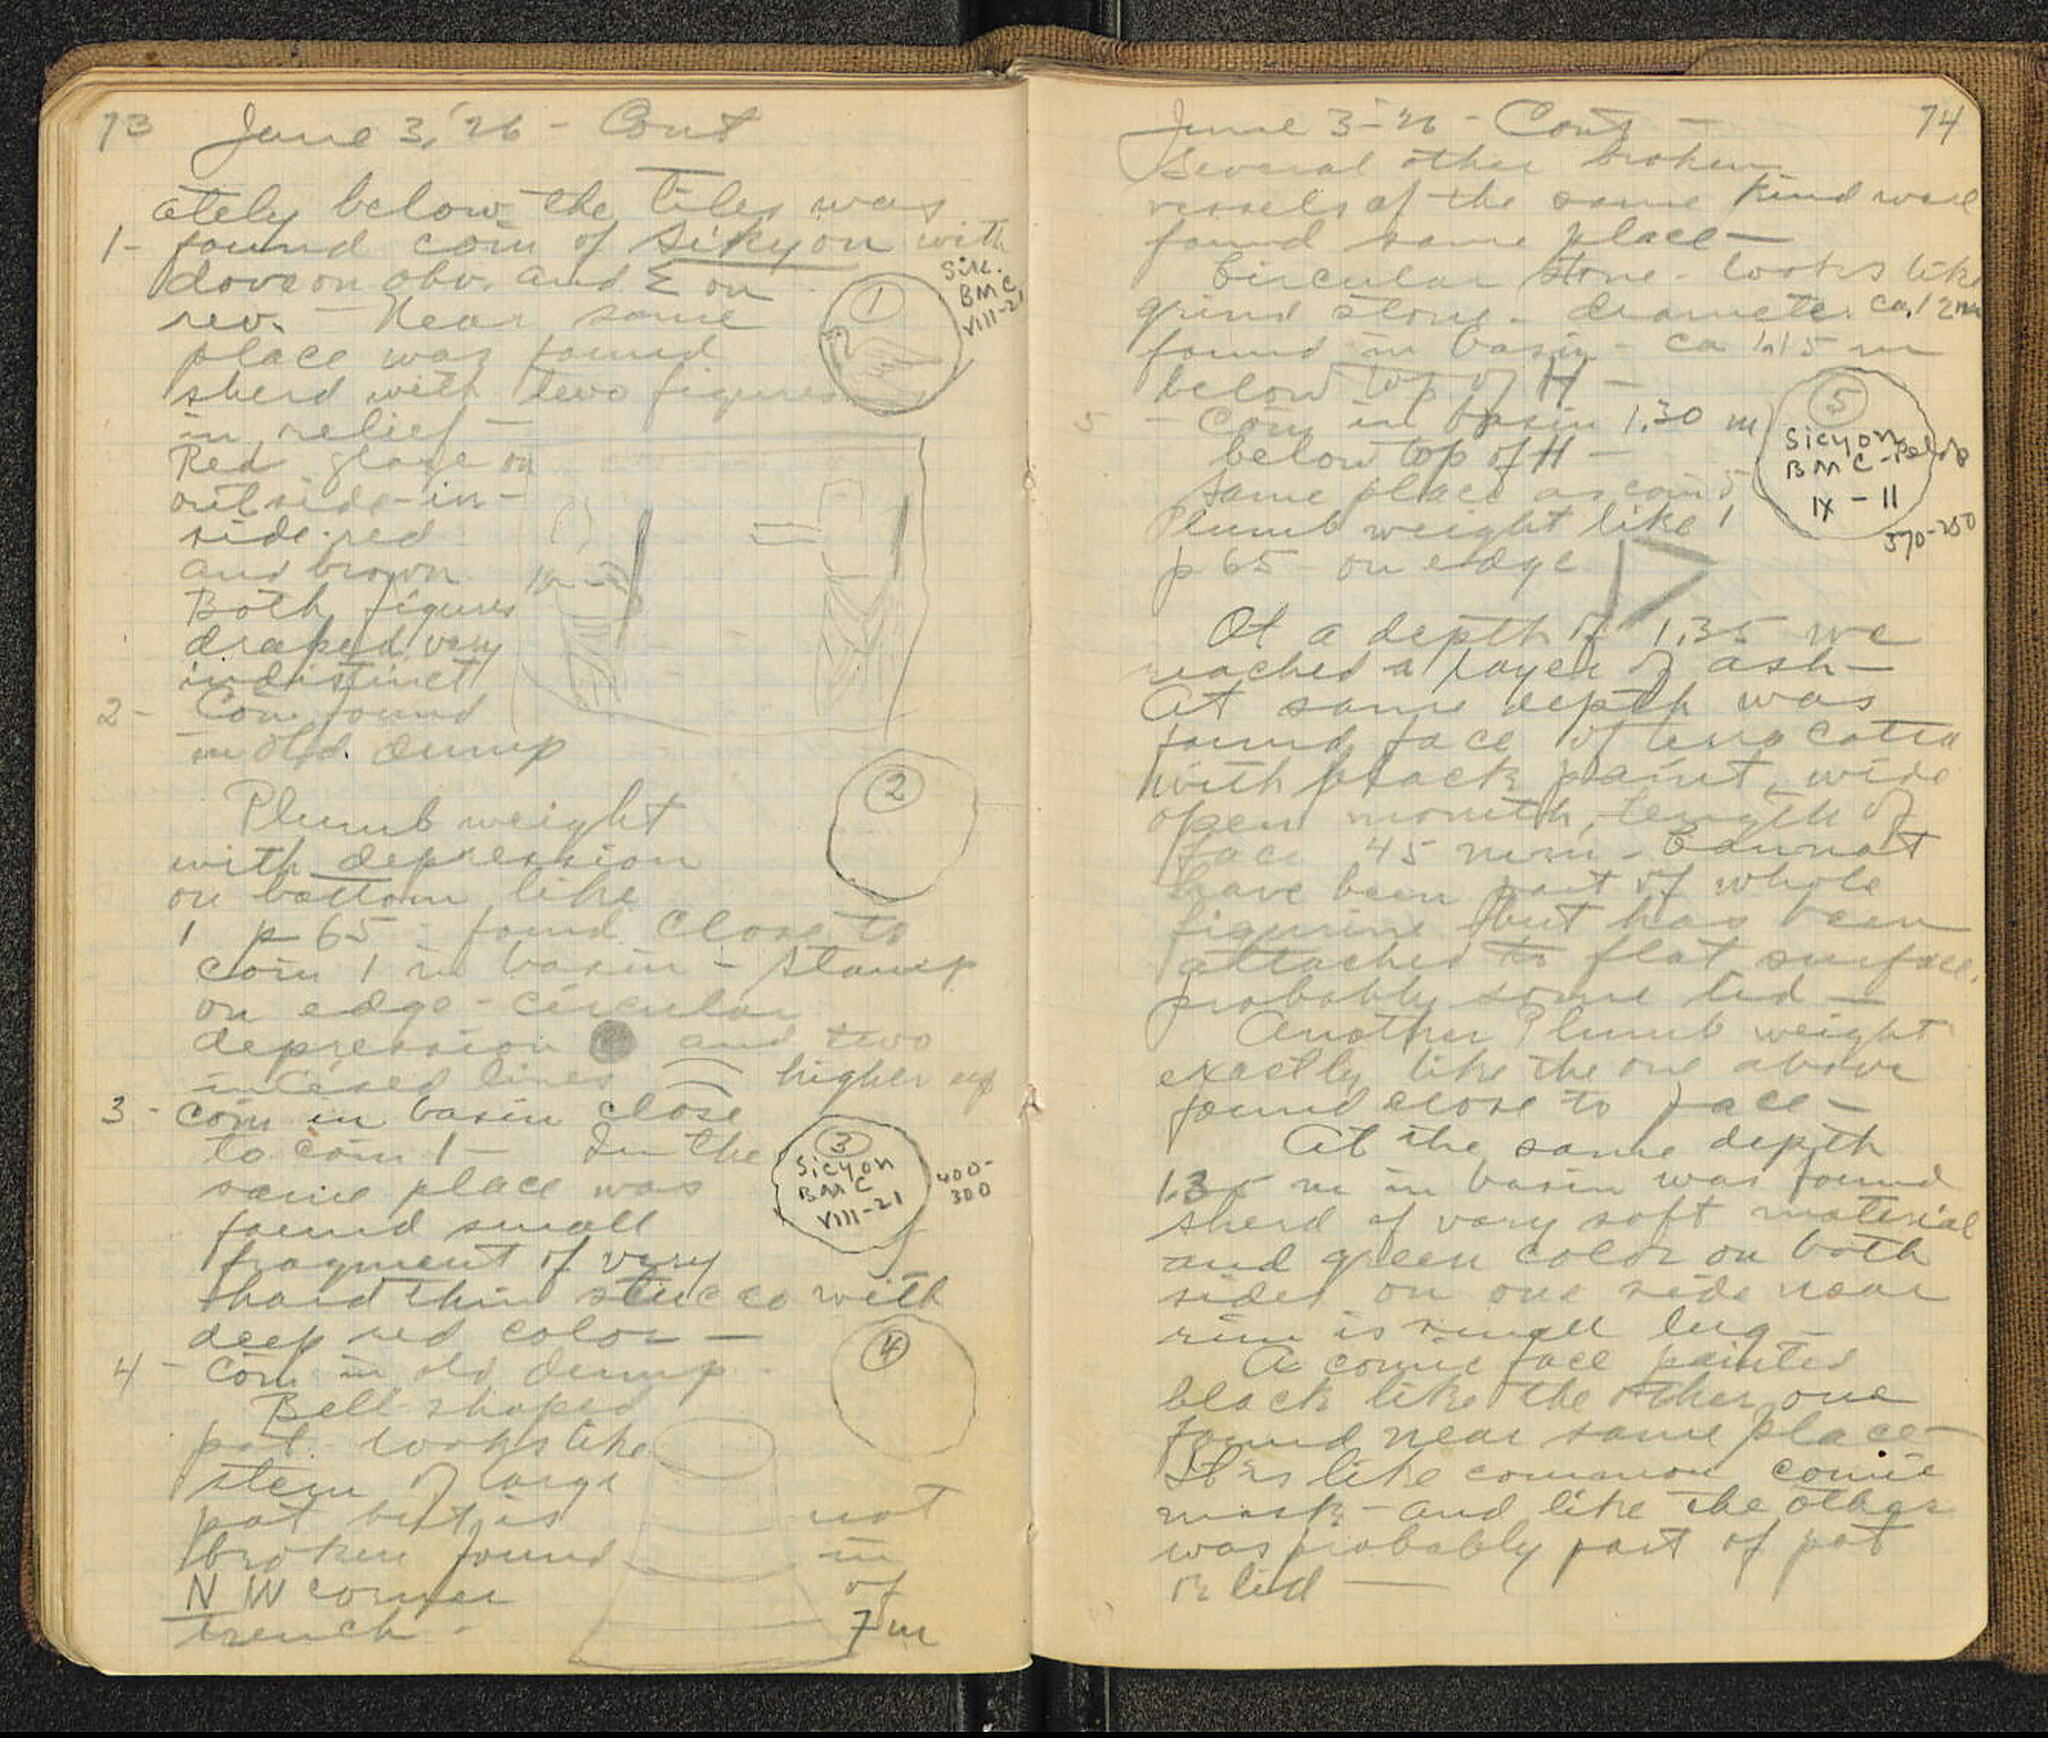 73 June 3, '26 - Cont
ately below the tiles was
1- found coin of Sikyon with
dove on obv. and Σ on
rev. - Near same
place was found
sherd with two figures
in relief -
Red glaze on
outside - in-
side red
and brown
Both figures
draped very
indistinct
2- Coin found
in old dump
Plumb weight
with depression
on bottom like
1 p 65 - found close to
coin 1 in basin - stamp
on edge - circular
depression and two
incised lines higher up
3- coin in basin close
to coin 1 - In the
same place was
found small
fragment of very
hard thin stucco with
deep red color -
4- Coin in old dump -
Bell shaped
pot looks like
stem of large
pot but is not
broken found in
N W corner of
trench - 7 m
1
Sik.
BMC
VIII-21
2
3
Sicyon
BMC
VIII-21
400-
300
4
June 3-26 - Cont - 74
Several other broken
vessels of the same kind were
found same place -
Circular stone - looks like
grind stone - diameter ca. 12m
found in basin - ca 1.15 m
below top of H -
5 - Coin in basin 1.30 m
below top of H -
Same place as coin 5
Plumb weight like 1
p 65 on edge
5
Sicyon
BMC-Pelop
IX-11
370-250
At a depth of 1.35 we
reached a layer of ash -
At same depth was
found face of terracotta
with black paint, wide
open mouth, length of
face 45 mm - Cannot
have been part of whole
figurine but has been
attached to flat surface,
probably some lid -
Another Plumb weight
exactly like the one above
found close to face -
At the same depth
1.35 m in basin was found
sherd of very soft material
and green color on both
sides on one side near
rim is small lug -
A comic face painted
black like the other one
found near same place -
It is like common comic
mask - and like the other
was probably part of pot
or lid -